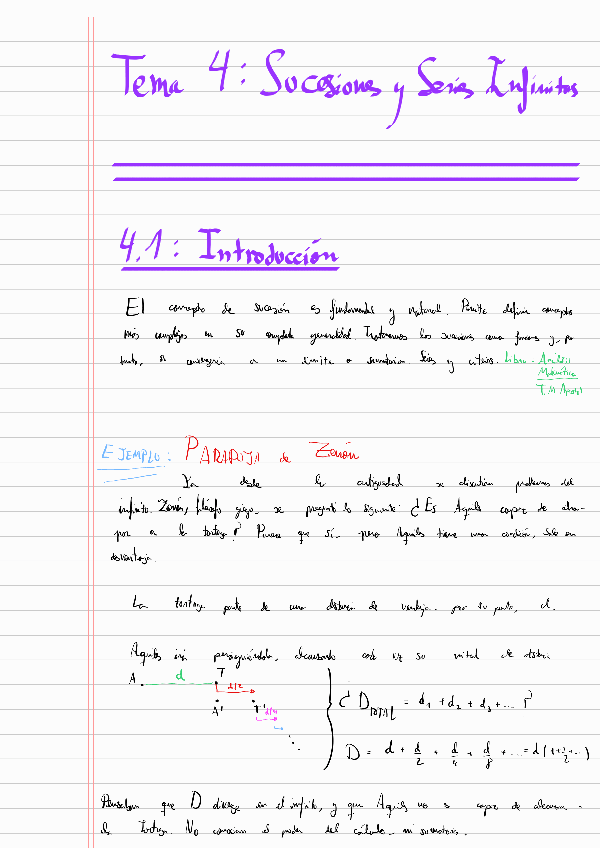 Tema 4: Sucesiones y Series Infinitas
4.1: Introducción
El concepto de sucesión es fundamental y natural. Permite definir conceptos
más complejos en su completa generalidad. Trataremos las sucesiones como funciones y, por
tanto, su convergencia a un límite o sumatorio. Series y criterios. Libro: Análisis
Matemático
T. M. Apostol
EJEMPLO: PARADOJA de Zenón
Ya desde la antigüedad se discutían problemas del
infinito. Zenón, filósofo griego se preguntó lo siguiente: ¿Es Aquiles capaz de atra-
par a la tortuga? Parece que sí, pero Aquiles tiene una condición, sale en
desventaja.
La tortuga parte de una distancia de ventaja. por su parte, el
Aquiles irá persiguiéndola, alcanzando cada vez su mitad de distancia
A d T
d/2
A' T' d/4
¿ D TOTAL = d1 + d2 + d3 + ... ?
D = d + d/2 + d/4 + d/8 + ... = d (1+1/2+...)
Pensaban que D diverge en el infinito, y que Aquiles no es capaz de alcanzar a
la tortuga. No conocían el poder del cálculo ni sumatorios.